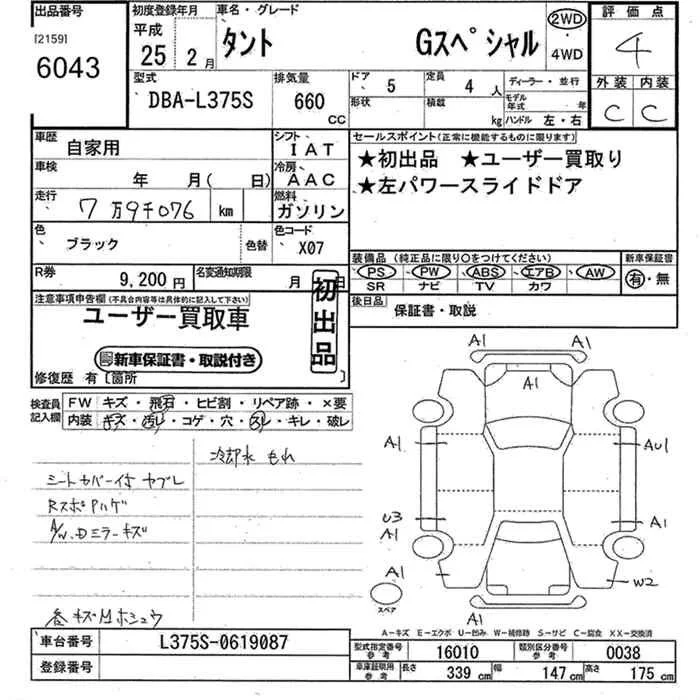 出品番号 初度登録年月 車名・グレード 評価点
[2159] 平成
6043 25 2月 タント Gスペシャル 2WD・4WD 4
型式 排気量 ドア 5 定員 4人 ディーラー・並行 外装 内装
DBA-L375S 660 CC 形状 積載 kg モデル年式 年 ハンドル 左・右 C C
車歴 自家用 シフト IAT セールスポイント(正常に機能するものに限ります)
車検 年 月( 日) 冷房 AAC ★初出品 ★ユーザー買取り
走行 7万9千076 km 燃料 ガソリン ★左パワースライドドア
色 ブラック 色替 色コード X07
装備品 (純正品に限り○をつけてください) 新車保証書
PS PW ABS エアB AW 有・無
SR ナビ TV カワ
R券 9,200円 名変通知期限 月 日
後日品 保証書・取説
注意事項申告欄(不具合内容等は具体的に記入して下さい) 初出品
ユーザー買取車
新車保証書・取説付き
修復歴 有[箇所 ]
検査員記入欄 FW キズ・飛石・ヒビ割・リペア跡・×要
内装 キズ・汚レ・コゲ・穴・スレ・キレ・破レ
冷却水 もれ
シートカバー付 ヤブレ
RスポPハゲ
A/W、Dミラーキズ
A1 A1
A1
A1 AU1
U3 A1
A1
A1 W2
スペア
A1
A-キズ E-エクボ U-凹み W-補修跡 S-サビ C-腐食 XX-交換済
車台番号 L375S-0619087
登録番号
型式指定番号 参考 16010 類別区分番号 参考 0038
車庫証明用 参考 長さ 339cm 幅 147cm 高さ 175cm